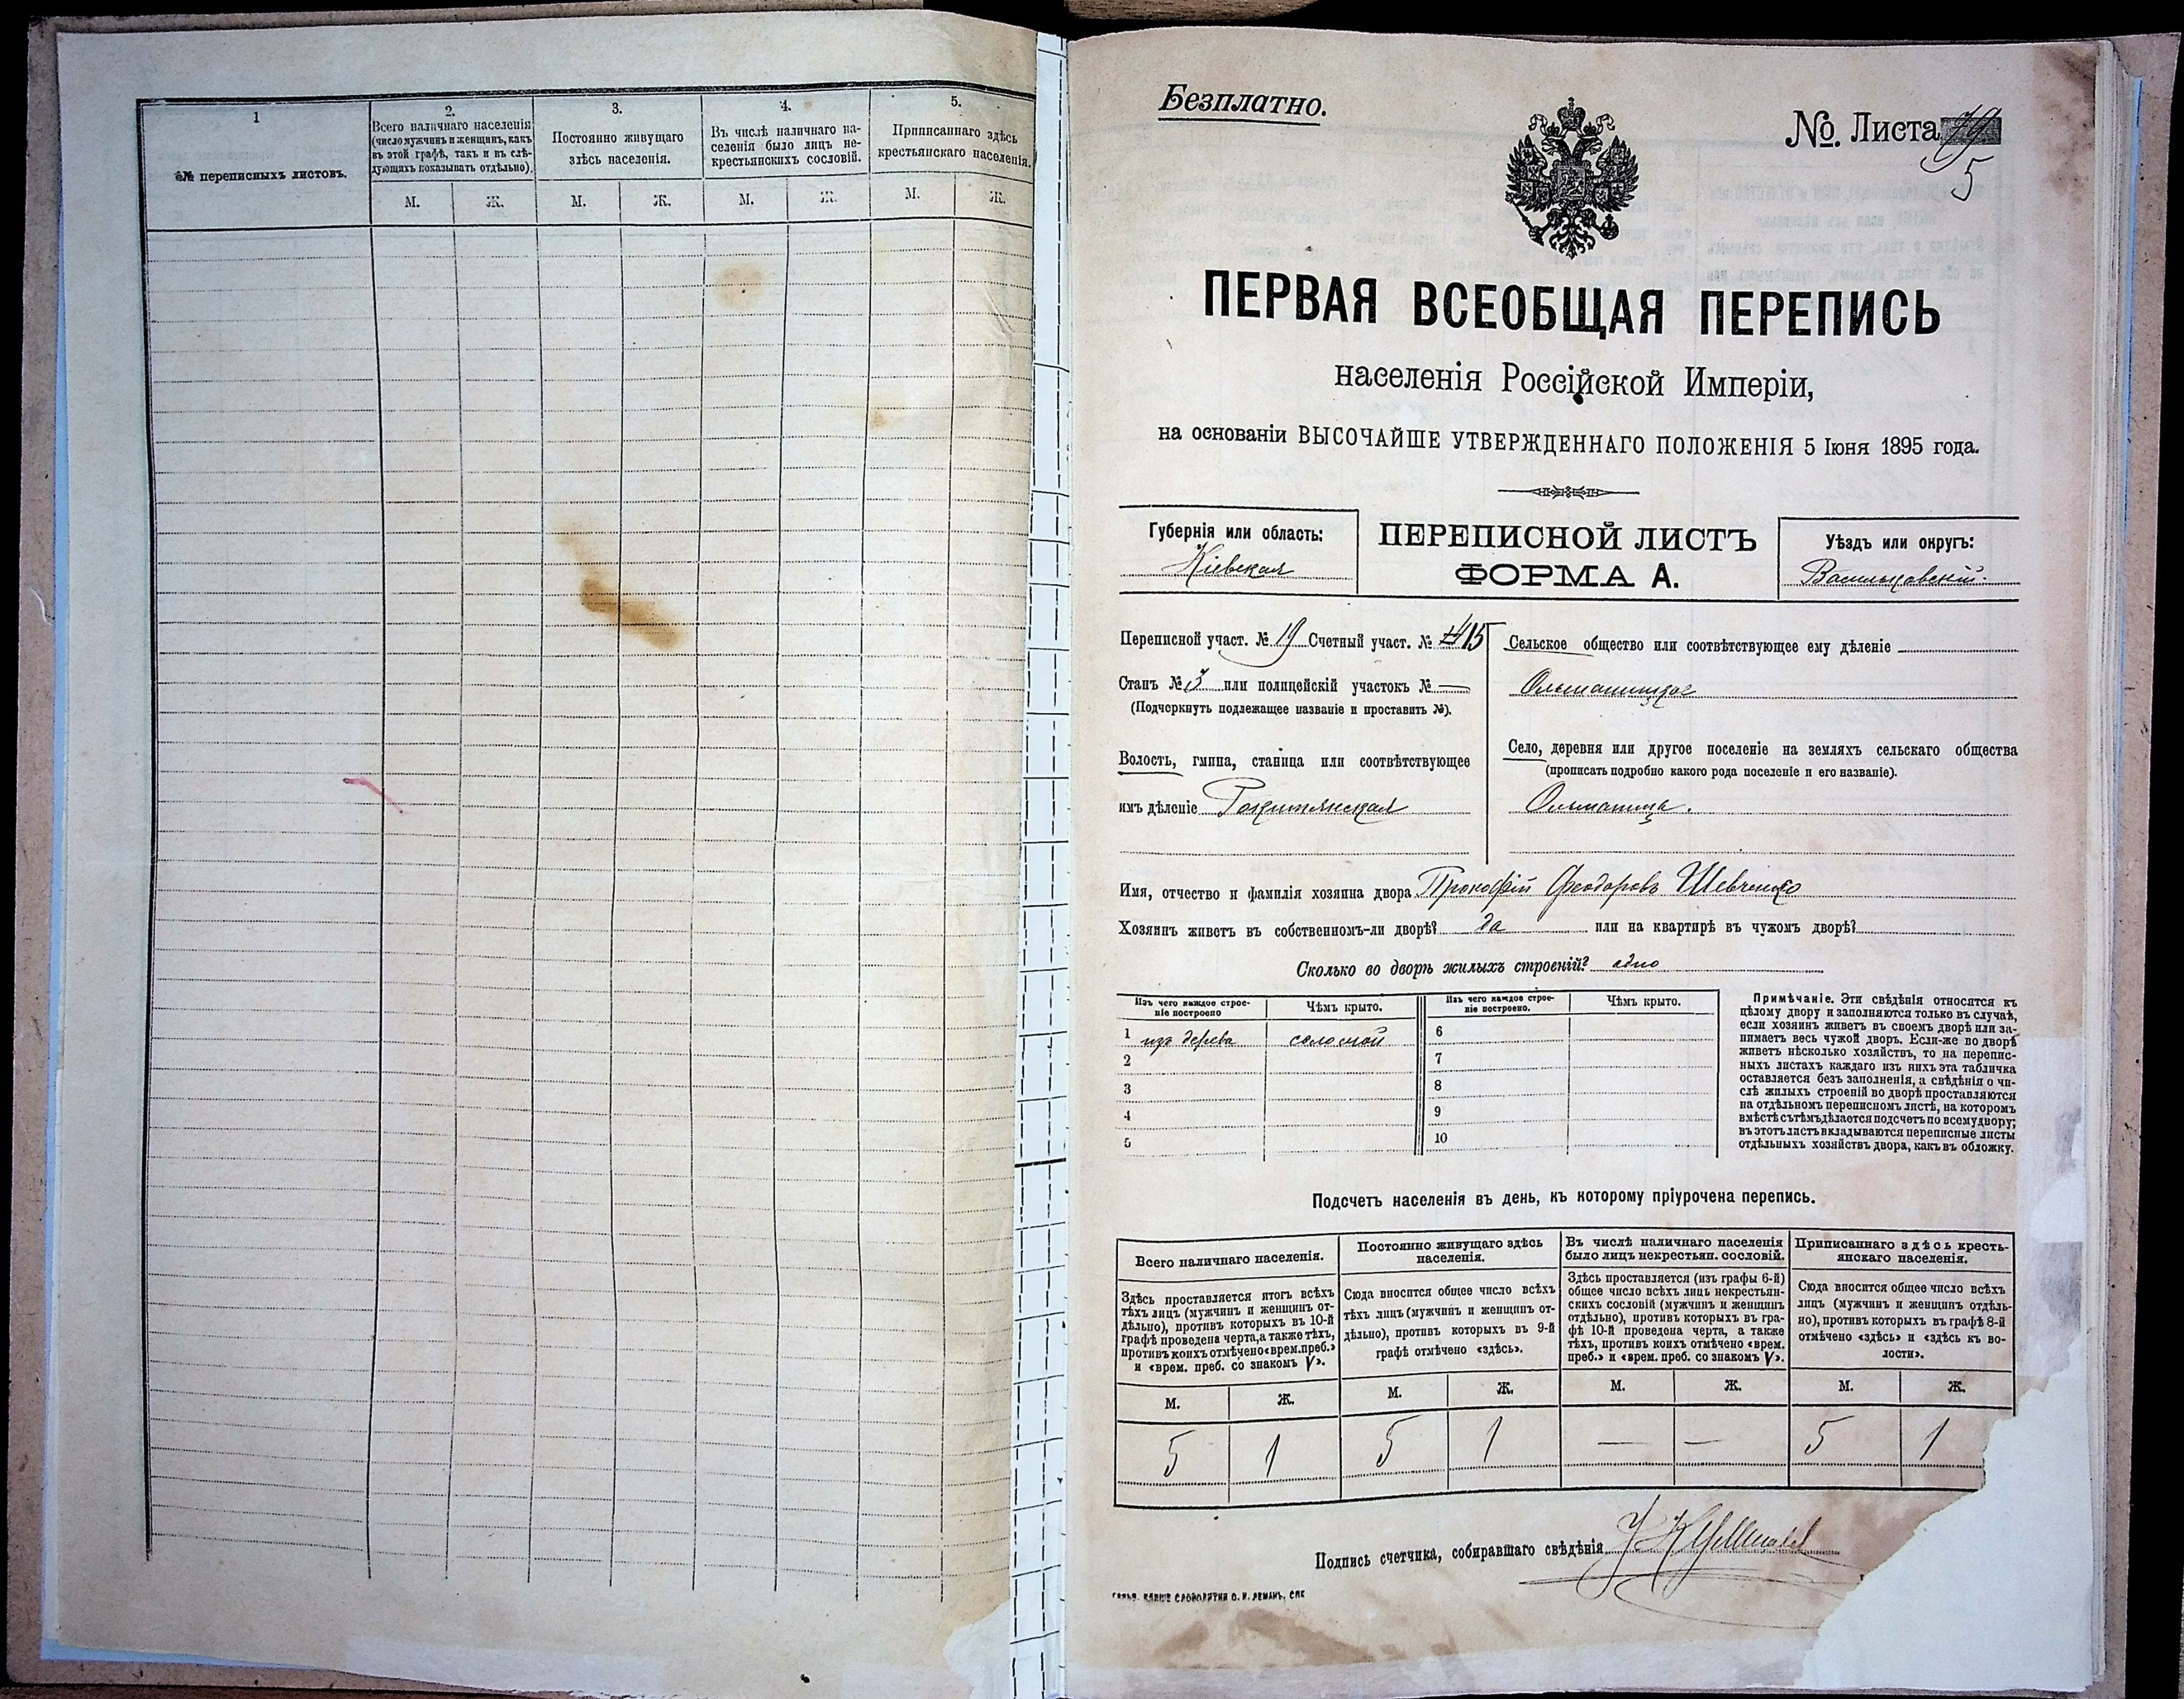 1
№№ переписныхъ листовъ.
2.
Всего наличнаго населенія
(число мужчинъ и женщинъ, какъ
въ этой графѣ, такъ и въ слѣ-
дующихъ показывать отдѣльно).
3.
Постоянно живущаго
здѣсь населенія.
4.
Въ числѣ наличнаго на-
селенія было лицъ не-
крестьянскихъ сословій.
5.
Приписаннаго здѣсь
крестьянскаго населенія.
М. Ж. М. Ж. М. Ж. М. Ж.
Безплатно.
№. Листа 79
5
ПЕРВАЯ ВСЕОБЩАЯ ПЕРЕПИСЬ
населенія Россійской Имперіи,
на основаніи ВЫСОЧАЙШЕ УТВЕРЖДЕННАГО ПОЛОЖЕНІЯ 5 Іюня 1895 года.
Губернія или область:
Кіевская
ПЕРЕПИСНОЙ ЛИСТЪ
ФОРМА А.
Уѣздъ или округъ:
Васильковскій.
Переписной участ. № 19 Счетный участ. № 15
Станъ № 3 или полицейскій участокъ № —
(Подчеркнуть подлежащее названіе и проставить №).
Волость, гмина, станица или соотвѣтствующее
имъ дѣленіе Рокитянская
Сельское общество или соотвѣтствующее ему дѣленіе
Ольшаницкое
Село, деревня или другое поселеніе на земляхъ сельскаго общества
(прописать подробно какого рода поселеніе и его названіе).
Ольшаница.
Имя, отчество и фамилія хозяина двора Прокофій Феодоровъ Шевченко
Хозяинъ живетъ въ собственномъ-ли дворѣ? да или на квартирѣ въ чужомъ дворѣ?
Сколько во дворѣ жилыхъ строеній? одно
Изъ чего каждое строе-
ніе построено
Чѣмъ крыто.
Изъ чего каждое строе-
ніе построено.
Чѣмъ крыто.
1 изъ дерева соломой 6
2 7
3 8
4 9
5 10
Примѣчаніе. Эти свѣдѣнія относятся къ
цѣлому двору и заполняются только въ случаѣ,
если хозяинъ живетъ въ своемъ дворѣ или за-
нимаетъ весь чужой дворъ. Если-же во дворѣ
живетъ нѣсколько хозяйствъ, то на перепис-
ныхъ листахъ каждаго изъ нихъ эта табличка
оставляется безъ заполненія, а свѣдѣнія о чи-
слѣ жилыхъ строеній во дворѣ проставляются
на отдѣльномъ переписномъ листѣ, на которомъ
вмѣстѣ съ тѣмъ дѣлается подсчетъ по всему двору;
въ этотъ листъ вкладываются переписные листы
отдѣльныхъ хозяйствъ двора, какъ въ обложку.
Подсчетъ населенія въ день, къ которому пріурочена перепись.
Всего наличнаго населенія.
Здѣсь проставляется итогъ всѣхъ
тѣхъ лицъ (мужчинъ и женщинъ от-
дѣльно), противъ которыхъ въ 10-й
графѣ проведена черта, а также тѣхъ,
противъ коихъ отмѣчено «врем. преб.»
и «врем. преб. со знакомъ V».
Постоянно живущаго здѣсь
населенія.
Сюда вносится общее число всѣхъ
тѣхъ лицъ (мужчинъ и женщинъ от-
дѣльно), противъ которыхъ въ 9-й
графѣ отмѣчено «здѣсь».
Въ числѣ наличнаго населенія
было лицъ некрестьян. сословій.
Здѣсь проставляется (изъ графы 6-й)
общее число всѣхъ лицъ некрестьян-
скихъ сословій (мужчинъ и женщинъ
отдѣльно), противъ которыхъ въ гра-
фѣ 10-й проведена черта, а также
тѣхъ, противъ коихъ отмѣчено «врем.
преб.» и «врем. преб. со знакомъ V».
Приписаннаго здѣсь кресть-
янскаго населенія.
Сюда вносится общее число всѣхъ
лицъ (мужчинъ и женщинъ отдѣль-
но), противъ которыхъ въ графѣ 8-й
отмѣчено «здѣсь» и «здѣсь къ во-
лости».
М. Ж. М. Ж. М. Ж. М. Ж.
5 1 5 1 — — 5 1
Подпись счетчика, собиравшаго свѣдѣнія
СЛОВОЛИТНЯ О. И. ЛЕМАНЪ, СПБ